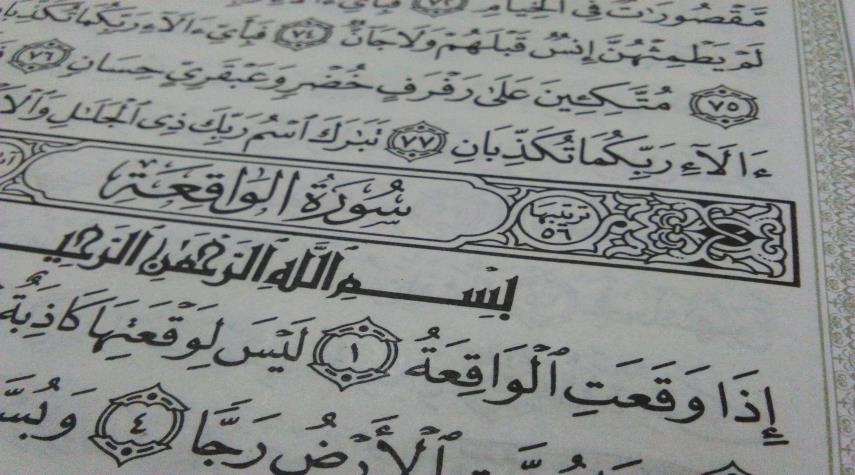 مَّقْصُورَاتٌ فِى الْخِيَامِ ٧٢ فَبِأَيِّ ءَا
لَمْ يَطْمِثْهُنَّ إِنسٌ قَبْلَهُمْ وَلَا جَانٌّ ٧٤ فَبِأَيِّ ءَالَآءِ رَبِّكُمَا تُكَذِّبَانِ
٧٥ مُتَّكِـِٔينَ عَلَىٰ رَفْرَفٍ خُضْرٍ وَعَبْقَرِيٍّ حِسَانٍ ٧٦
ءَالَآءِ رَبِّكُمَا تُكَذِّبَانِ ٧٧ تَبَٰرَكَ ٱسْمُ رَبِّكَ ذِى ٱلْجَلَٰلِ وَٱلْإ
ترتيبها ٥٦ سُورَةُ الوَاقِعَةِ
بِسْمِ اللَّهِ الرَّحْمَٰنِ الرَّحِي
إِذَا وَقَعَتِ ٱلْوَاقِعَةُ ١ لَيْسَ لِوَقْعَتِهَا كَاذِبَةٌ
ٱلْأَرْضُ رَجًّا ٤ وَبُسَّ